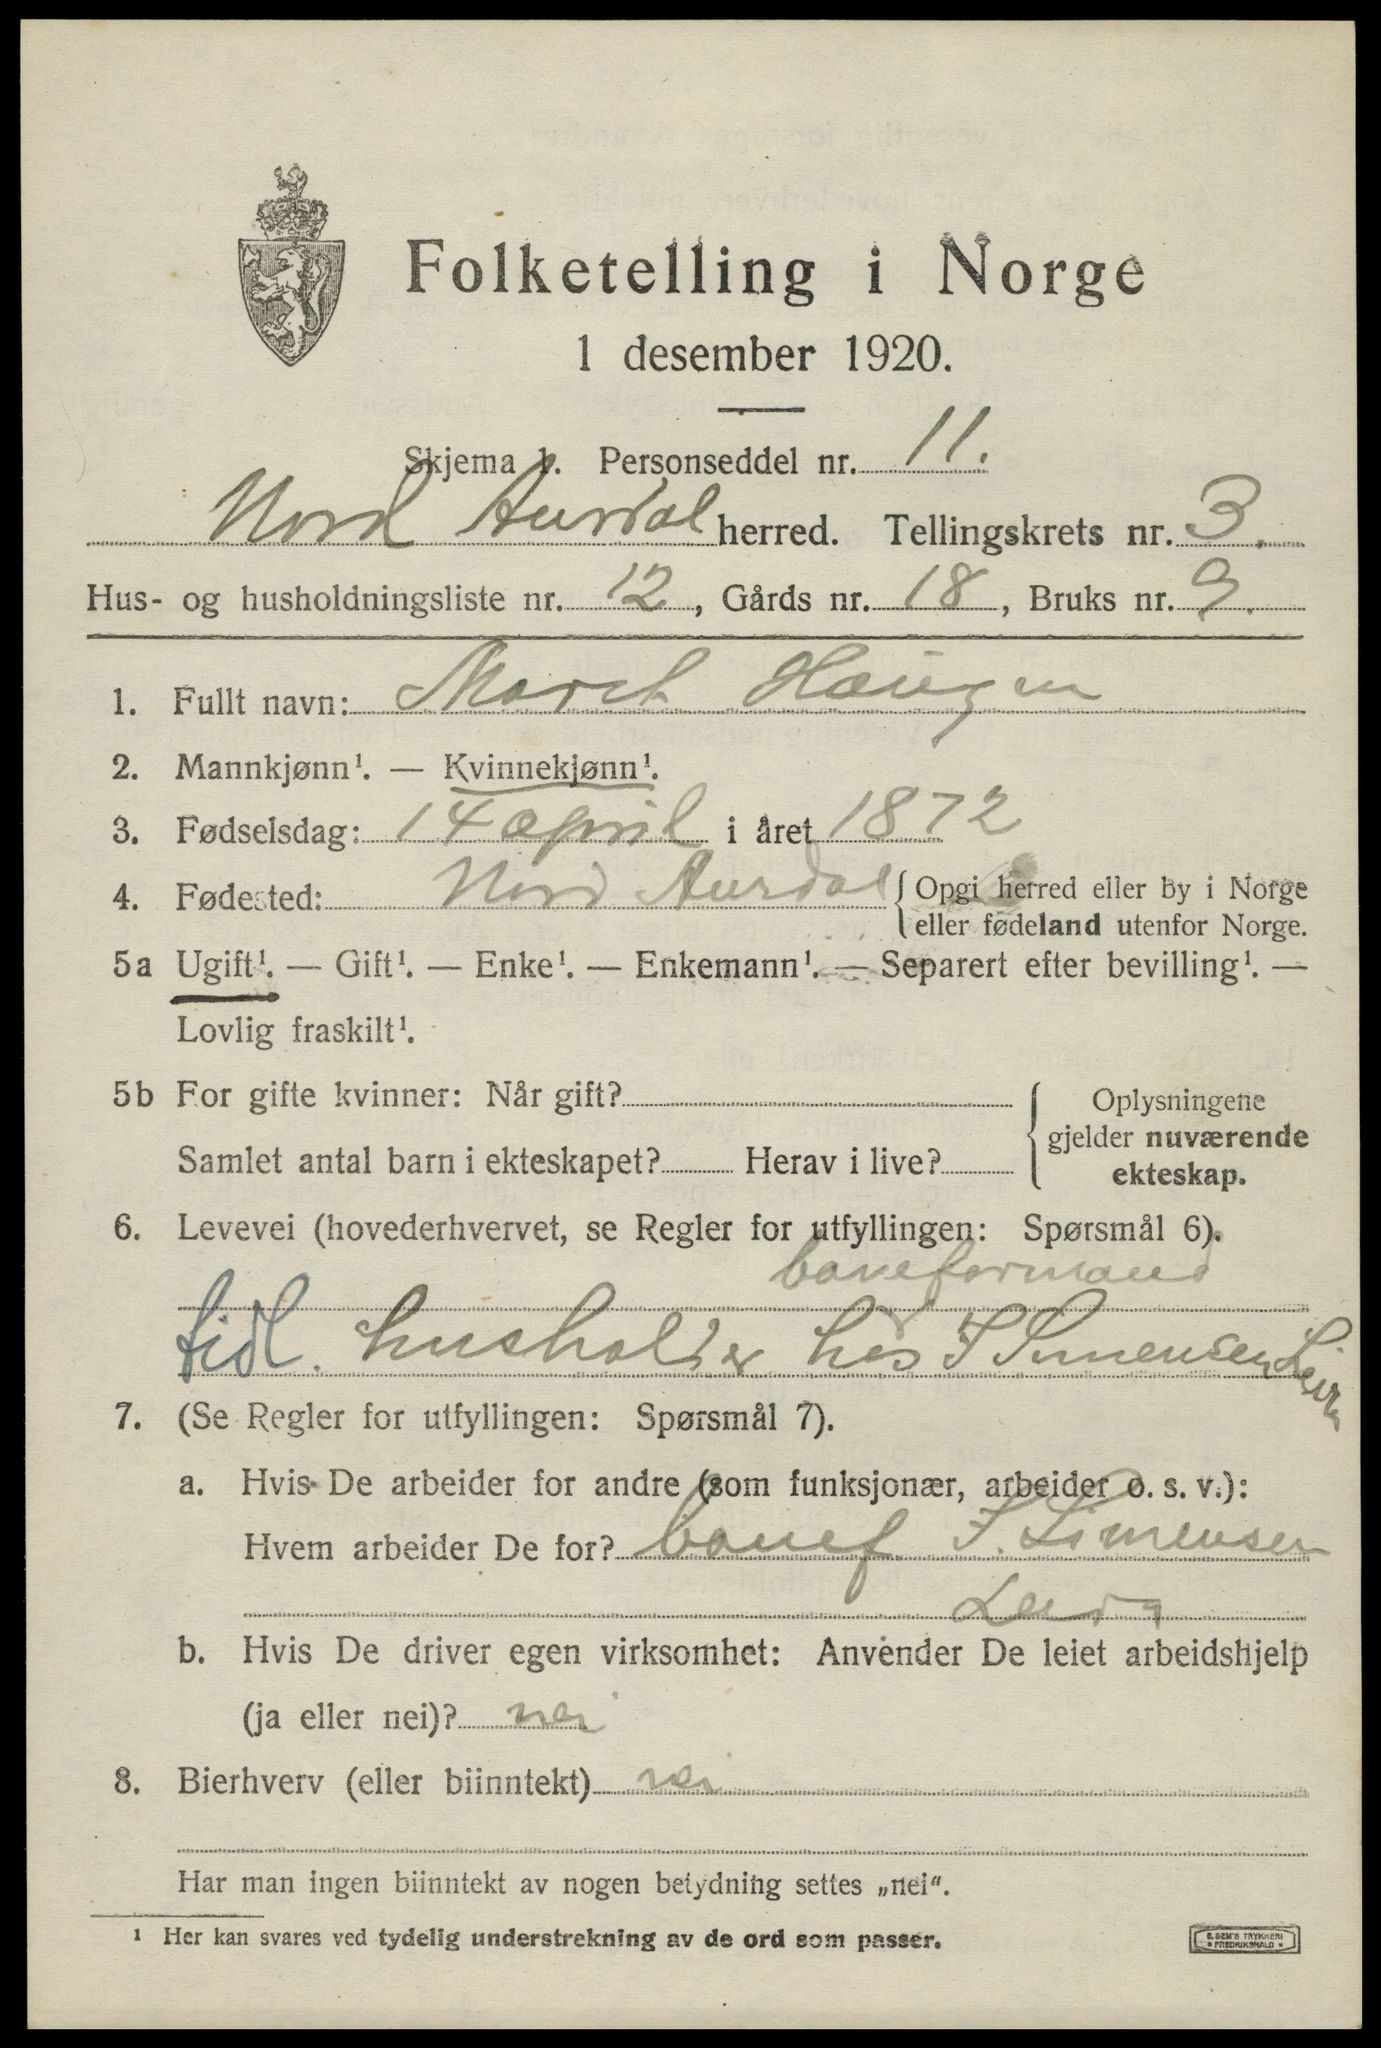 Folketelling i Norge
1 desember 1920.
Skjema 1. Personseddel nr. 11.
Nord Aurdal herred. Tellingskrets nr. 3.
Hus- og husholdningsliste nr. 12, Gårds nr. 18, Bruks nr. 9.
1. Fullt navn: Marit Haugen
2. Mannkjønn¹. — Kvinnekjønn¹.
3. Fødselsdag: 14 april i året 1872
4. Fødested: Nord Aurdal { Opgi herred eller by i Norge
eller fødeland utenfor Norge.
5a Ugift¹. — Gift¹. — Enke¹. — Enkemann¹. — Separert efter bevilling¹. —
Lovlig fraskilt¹.
5b For gifte kvinner: Når gift?
Samlet antal barn i ekteskapet? Herav i live?
Oplysningene
gjelder nuværende
ekteskap.
6. Levevei (hovederhvervet, se Regler for utfyllingen: Spørsmål 6).
baneformand
tidl. husholder hos I Simensen Leira
7. (Se Regler for utfyllingen: Spørsmål 7).
a. Hvis De arbeider for andre (som funksjonær, arbeider o. s. v.):
Hvem arbeider De for? banef. I. Simensen
Leira
b. Hvis De driver egen virksomhet: Anvender De leiet arbeidshjelp
(ja eller nei)? nei
8. Bierhverv (eller biinntekt) nei
Har man ingen biinntekt av nogen betydning settes „nei".
¹ Her kan svares ved tydelig understrekning av de ord som passer.
E. SEM'S TRYKKERI
FREDRIKSHALD